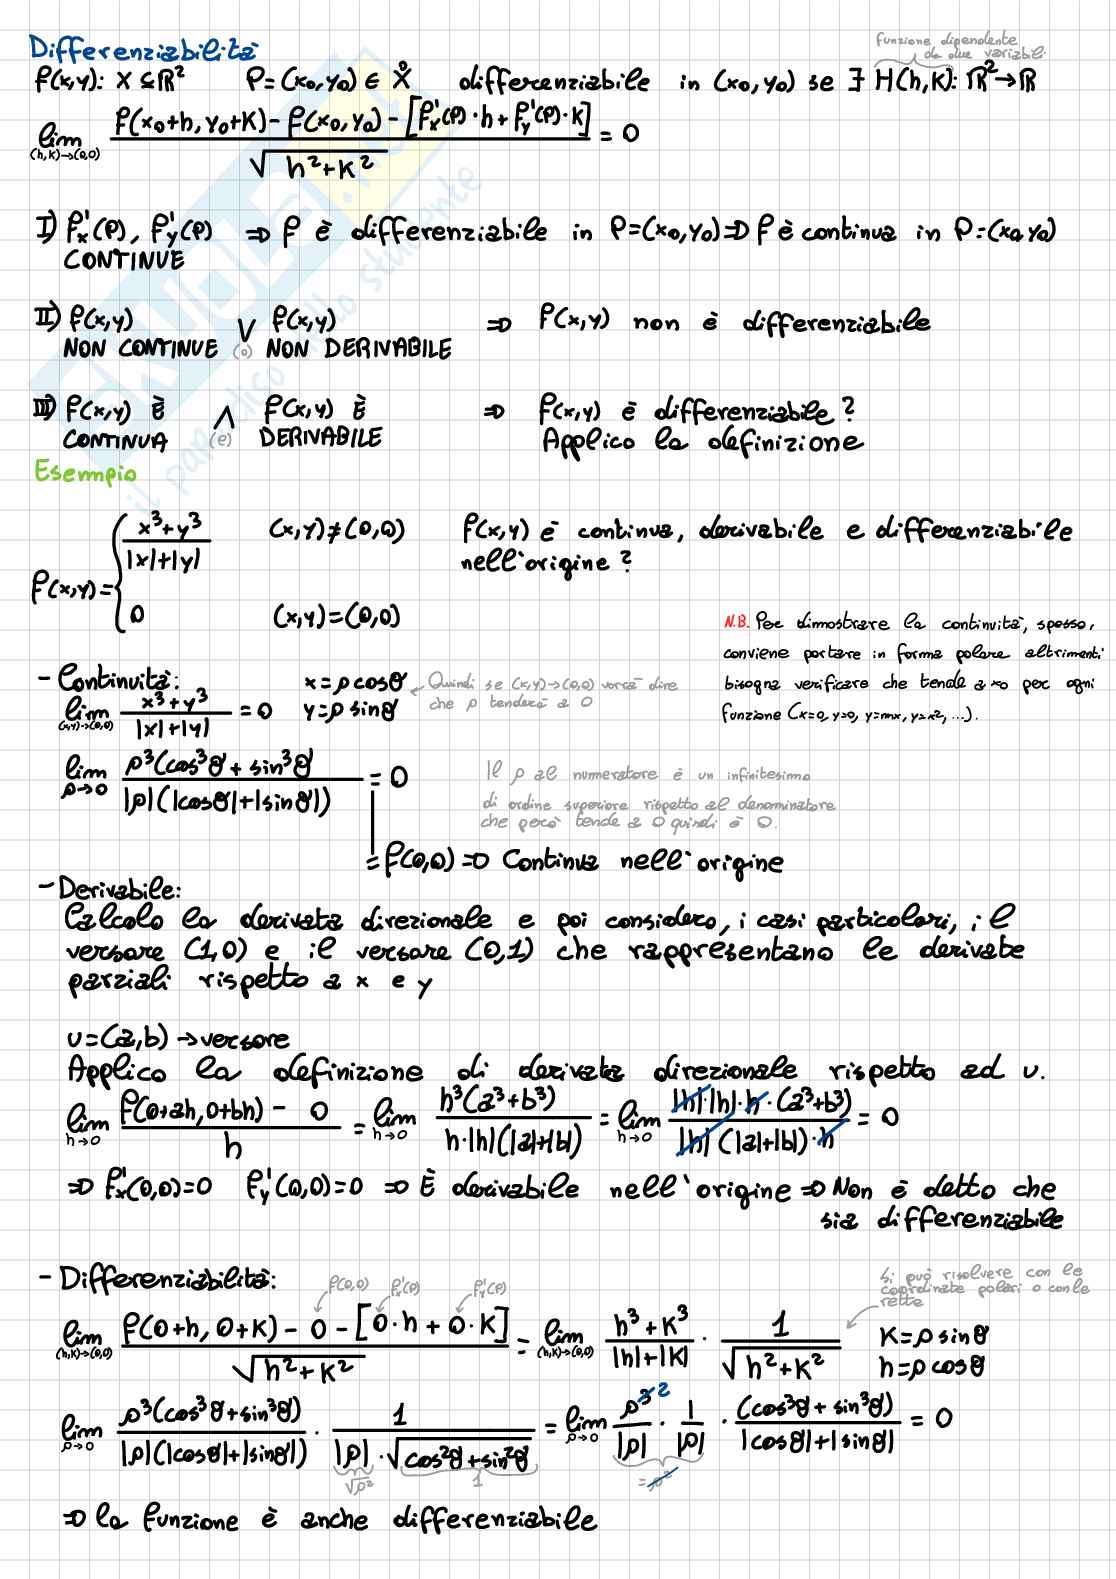 Differenziabilità
funzione dipendente
da due variabili
f(x,y): X ⊆ ℝ² P=(x₀,y₀) ∈ X̊ differenziabile in (x₀,y₀) se ∃ H(h,k): ℝ²→ℝ
lim (h,k)→(0,0) f(x₀+h, y₀+k) - f(x₀,y₀) - [f'x(P)·h + f'y(P)·k] / √(h²+k²) = 0
I) f'x(P), f'y(P) ⇒ f è differenziabile in P=(x₀,y₀) ⇒ f è continua in P=(x₀,y₀)
CONTINUE
II) f(x,y) ∨ f(x,y) ⇒ f(x,y) non è differenziabile
NON CONTINUE (o) NON DERIVABILE
III) f(x,y) È ∧ f(x,y) È ⇒ f(x,y) è differenziabile?
CONTINUA (e) DERIVABILE Applico la definizione
Esempio
f(x,y) = { x³+y³ / |x|+|y| (x,y)≠(0,0)
0 (x,y)=(0,0)
f(x,y) è continua, derivabile e differenziabile
nell'origine?
N.B. Per dimostrare la continuità, spesso,
conviene portare in forma polare altrimenti
bisogna verificare che tende a x₀ per ogni
funzione (x=0, y=0, y=mx, y=x², ...).
- Continuità: x=ρcosθ
Quindi se (x,y)→(0,0) vorrà dire
che ρ tenderà a 0
lim (x,y)→(0,0) x³+y³ / |x|+|y| = 0 y=ρsinθ
lim ρ→0 ρ³(cos³θ + sin³θ) / |ρ|(|cosθ|+|sinθ|) = 0
Il ρ al numeratore è un infinitesimo
di ordine superiore rispetto al denominatore
che però tende a 0 quindi è 0.
= f(0,0) ⇒ Continua nell'origine
- Derivabile:
Calcolo la derivata direzionale e poi considero, i casi particolari, il
versore (1,0) e il versore (0,1) che rappresentano le derivate
parziali rispetto a x e y
υ=(a,b) → versore
Applico la definizione di derivata direzionale rispetto ad υ.
lim h→0 f(0+ah, 0+bh) - 0 / h = lim h→0 h³(a³+b³) / h·|h|(|a|+|b|) = lim h→0 |h|·|h|·h·(a³+b³) / |h|(|a|+|b|)·h = 0
⇒ f'x(0,0)=0 f'y(0,0)=0 ⇒ È derivabile nell'origine ⇒ Non è detto che
sia differenziabile
- Differenziabilità:
f(0,0) f'x(P) f'y(P)
Si può risolvere con le
coordinate polari o con le
rette
lim (h,k)→(0,0) f(0+h, 0+k) - 0 - [0·h + 0·k] / √(h²+k²) = lim (h,k)→(0,0) h³+k³ / |h|+|k| · 1 / √(h²+k²) k=ρsinθ
h=ρcosθ
lim ρ→0 ρ³(cos³θ+sin³θ) / |ρ|(|cosθ|+|sinθ|) · 1 / |ρ|·√(cos²θ+sin²θ) = lim ρ→0 ρ³ ² / |ρ| · 1 / |ρ| · (cos³θ + sin³θ) / |cosθ|+|sinθ| = 0
√ρ² 1 =ρ²
⇒ la funzione è anche differenziabile
SKUOLA.net
il paradiso dello studente